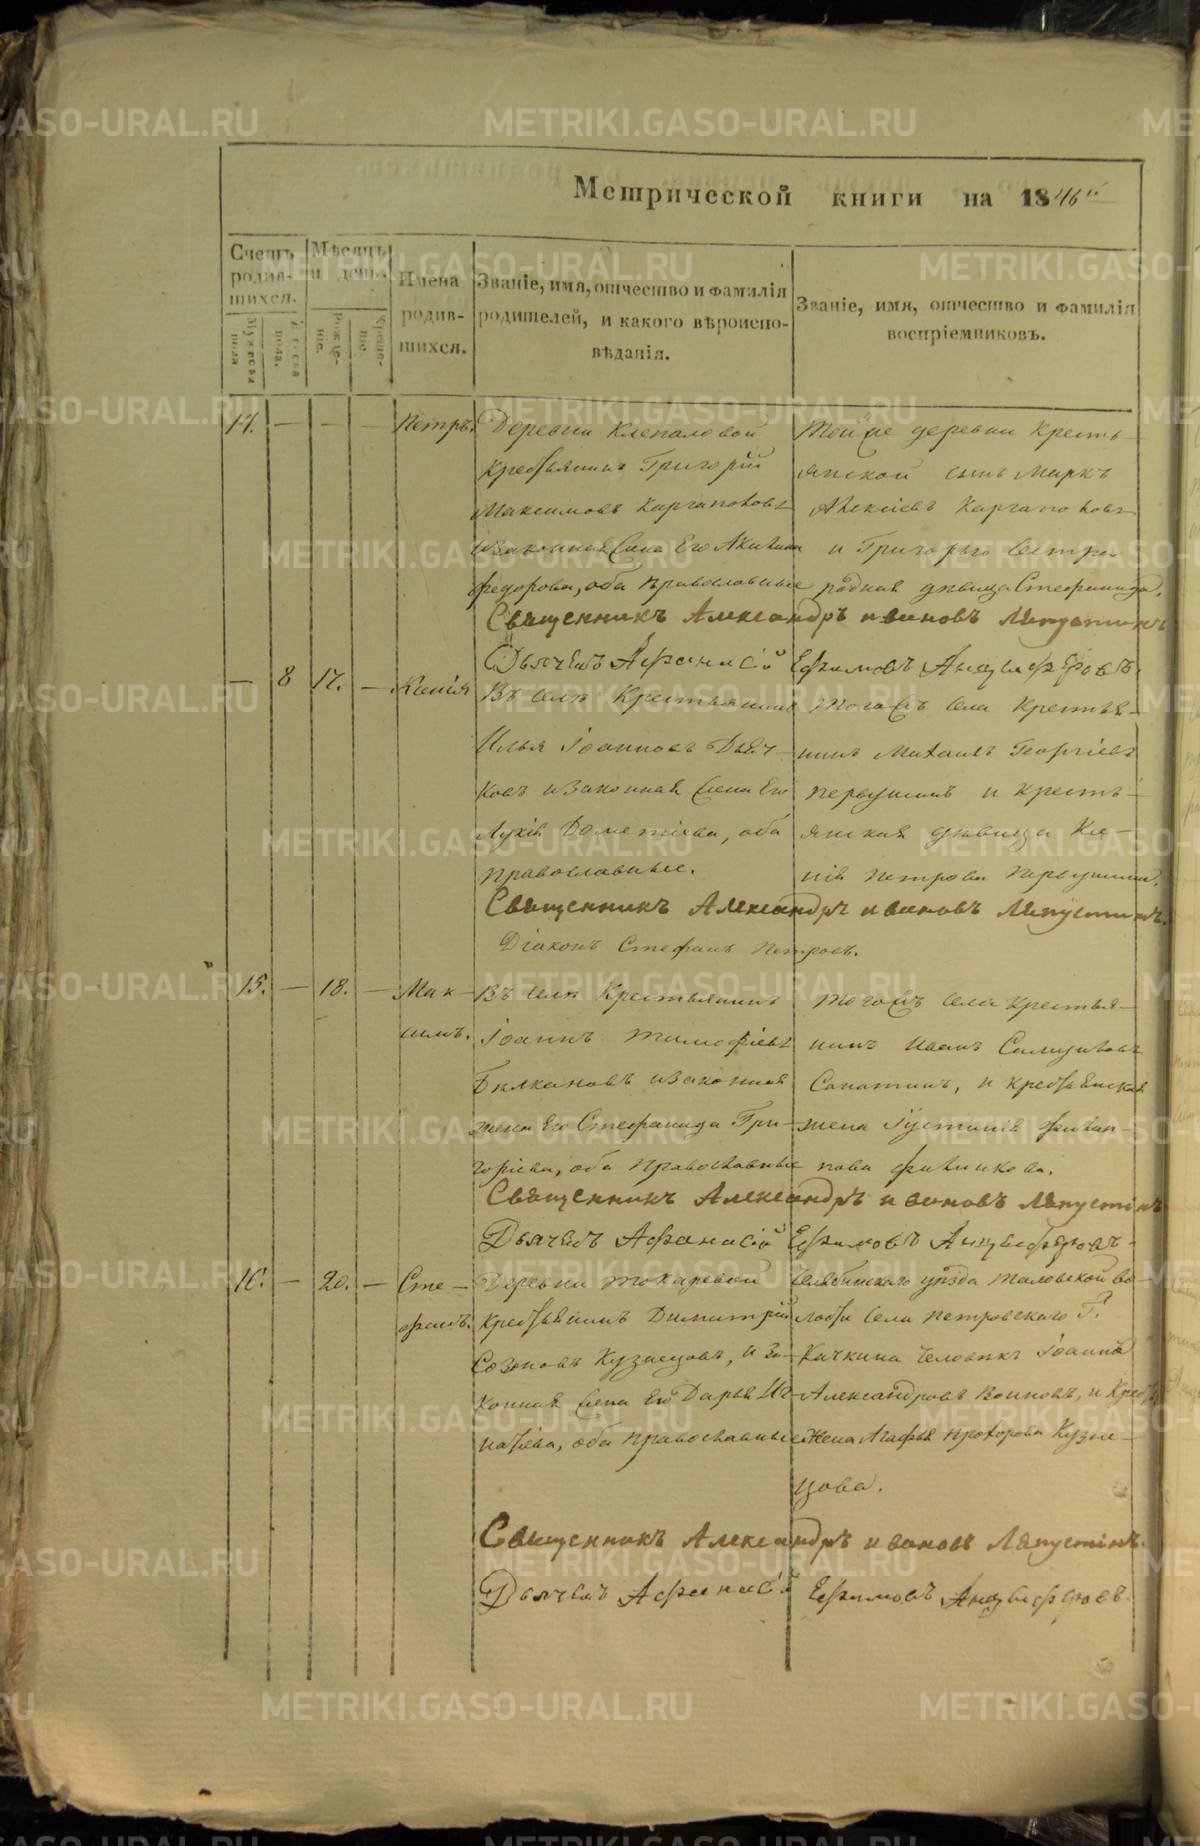 Метрической книги на 1846й
Счетъ родив-шихся.
Мѣсяцъ и день.
Имена родив-шихся.
Званіе, имя, отчество и фамилія родителей, и какого вѣроиспо-вѣданія.
Званіе, имя, отчество и фамилія воспріемниковъ.
Мужеска пола
Женска пола.
Рожде-ніе.
Креще-ніе.
14. — — — Петръ.
Деревни Клепаловой
Крестьянинъ Григорій
Максимовъ Каргаполовъ
и законная жена Его Акилина
Федорова, оба православные
Той же деревни кресть-
янской сынъ Маркъ
Алексіевъ Каргаполовъ
и Григорья сестра
родная дѣвица Стефанида.
Священникъ Александръ Ивановъ Ляпустинъ
Дьячекъ Афанасій Ефимовъ Анцыферовъ.
— 8 17. — Ксенія
Въ селѣ Крестьянинъ
Илья Іоанновъ Дьяч-
ковъ и законная жена Его
Лукія Дометіева, оба
православные.
того жъ села Крестья-
нинъ Михаилъ Георгіевъ
Первушинъ и кресть-
янская дѣвица Ксе-
нія Петрова Первушина.
Священникъ Александръ Ивановъ Ляпустинъ.
Діаконъ Стефанъ Петровъ.
15. — 18. — Мак-
симъ.
Въ селѣ Крестьянинъ
Іоаннъ Тимофіевъ
и законная
жена Его Стефанида Гри-
горіева, оба православные
того жъ села крестья-
нинъ Иванъ
Сапатинъ, и крестьянская
жена Іустинія Филип-
пова
Священникъ Александръ Ивановъ Ляпустинъ
Дьячекъ Афанасій Ефимовъ Анцыферовъ.
16. — 20. — Сте-
фанъ.
Деревни Токаревой
крестьянинъ Димитрій
Созоновъ Кузнецовъ, и за-
конная жена Его Дарья Иг-
натіева, оба православные
Челябинскаго уѣзда Таловской во-
лости села Петровскаго Г.
Качкина человѣкъ Іоаннъ
Александровъ Воиновъ, и Крест.
Жена Агафья Прохорова Кузне-
цова.
Священникъ Александръ Ивановъ Ляпустинъ.
Дьячекъ Афанасій Ефимовъ Анцыферовъ.
METRIKI.GASO-URAL.RU